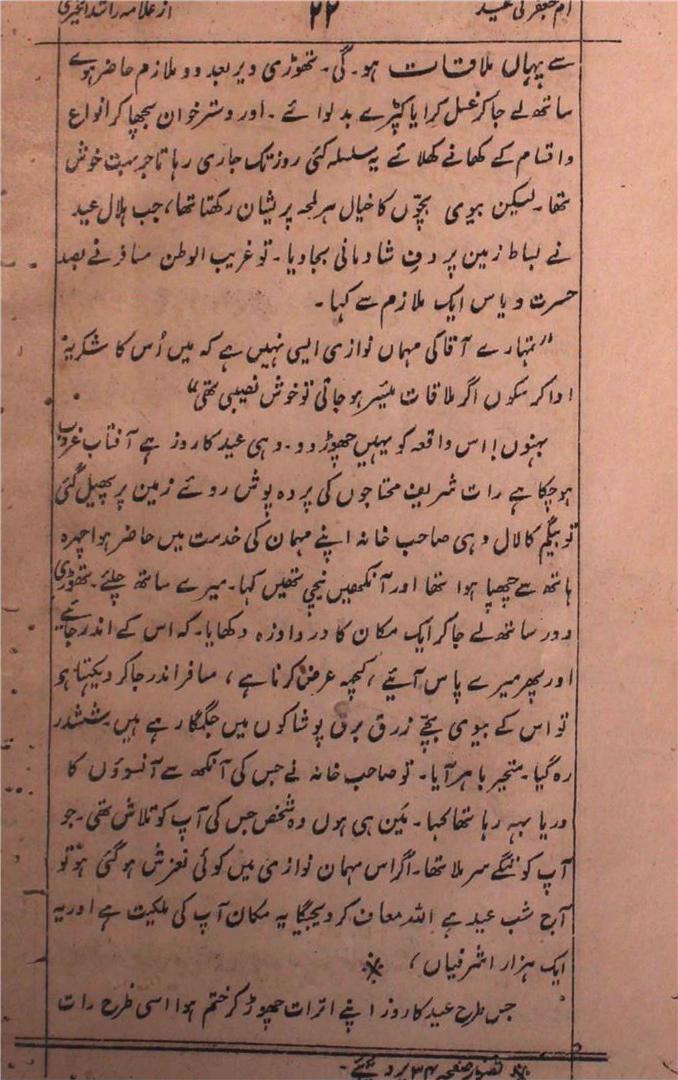 ام جعفر کی عید ۲۲ از علامہ راشد الخیری
سے یہاں ملاقات ہو۔ گی۔ تھوڑی دیر بعد دو ملازم حاضر ہوئے
ساتھ لے جا کر غسل کرایا کپڑے بدلوائے ۔ اور دسترخوان بچھا کر انواع
واقسام کے کھانے کھلائے یہ سلسلہ کئی روز تک جاری رہا تاجر بہت خوش
تھا۔ لیکن بیوی بچّوں کا خیال ہر لمحہ پریشان رکھتا تھا، جب ہلال عید
نے بساط زمین پر دف شادمانی بجادیا ۔ تو غریب الوطن مسافر نے بصد
حسرت ویاس ایک ملازم سے کہا ۔
"تمہارے آقا کی مہاں نوازی ایسی نہیں ہے کہ میں اُس کا شکریہ
ادا کر سکوں اگر ملاقات میسر ہو جاتی تو خوش نصیبی تھی"
بہنوں! اس واقعہ کو یہیں چھوڑ دو۔ وہی عید کا روز ہے آفتاب غروب
ہوچکا ہے رات شریف محتاجوں کی پردہ پوش روئے زمین پر پھیل گئی
تو بیگم کا لال وہی صاحب خانہ اپنے مہمان کی خدمت میں حاضر ہوا چہرہ
ہاتھ سے چھپا ہوا تھا اور آنکھیں نیچی تھیں کہا۔ میرے ساتھ چلئے۔ تھوڑی
دور ساتھ لے جا کر ایک مکان کا دروازہ دکھایا۔ کہ اس کے اندر جائیے
اور پھر میرے پاس آئیے ، کچہہ عرض کرنا ہے ، مسافر اندر جا کر دیکہتا ہو
تو اس کے بیوی بچّے زرق برق پوشاکوں میں جگمگا رہے ہیں ششدر
رہ گیا۔ متحیر باہر آیا۔ تو صاحب خانہ نے جس کی آنکھ سے آنسوؤں کا
دریا بہہ رہا تھا کہا ۔ میَں ہی ہوں وہ شخص جس کی آپ کو تلاش تھی۔ جو
آپ کو ننگے سر ملا تھا۔ اگر اس مہمان نوازی میں کوئی لغزش ہو گئی ہو تو
آج شب عید ہے اللہ معاف کر دیجیگا یہ مکان آپ کی ملکیت ہے اور یہ
ایک ہزار اشرفیاں ،
جس طرح عید کا روز اپنے اثرات چھوڑ کر ختم ہوا اسی طرح رات
صفحہ ۳۴ پر